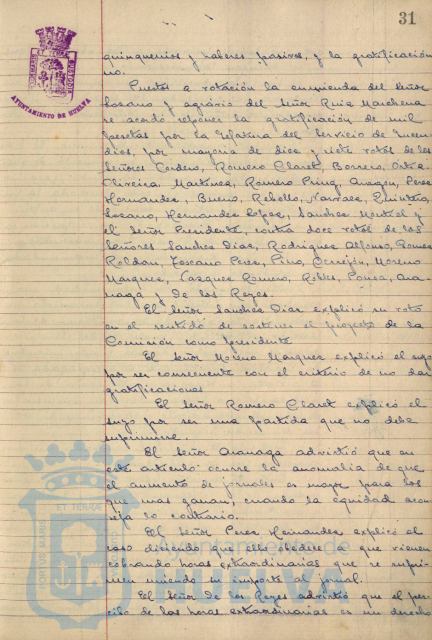 31
AYUNTAMIENTO DE HUELVA
quinquenios y haberes pasivos, y la gratificación
no.
Puestos a votación la enmienda del Señor
Lozano y agrario del Señor Ruiz Marchena
se acordó reponer la gratificación de mil
pesetas por la Jefatura del Servicio de Incen-
dios, por mayoria de diez y siete votos de los
Señores Cordero, Romero Claret, Borrero, Ortiz
Oliveira, Martinez, Romero Pring, Aragon, Perez
Hernandez, Bueno, Rebollo, Narvaez, Quintero,
Lozano, Hernandez Lopez, Sanchez Montiel y
el Señor Presidente, contra doce votos de los
Señores Sanchez Diaz, Rodriguez Alfonso, Gomez
Roldan, Toscano Perez, Pino, Cerrejon, Moreno
Marquez, Vazquez Romero, Robles, Ponce, Ara-
naga y de los Reyes.
El Señor Sanchez Diaz explicó su voto
en el sentido de sostener el proyecto de la
Comision como presidente
El Señor Moreno Marquez explicó el suyo
por ser consecuente con el criterio de no dar
gratificaciones
El Señor Romero Claret explicó el
suyo por ser una partida que no debe
suprimirse.
El Señor Aranaga advirtió que en
este articulo ocurre la anomalia de que
el aumento de jornales es mayor para los
que mas ganan, cuando la equidad acon-
seja lo contrario.
El Señor Perez Hernandez explicó el
caso diciendo que ello obedece a que vienen
cobrando horas extraordinarias que se supri-
men uniendo su importe al jornal.
El Señor de los Reyes advirtió que el per-
cibo de las horas extraordinarias es un derecho
Ayuntamiento de
HUELVA